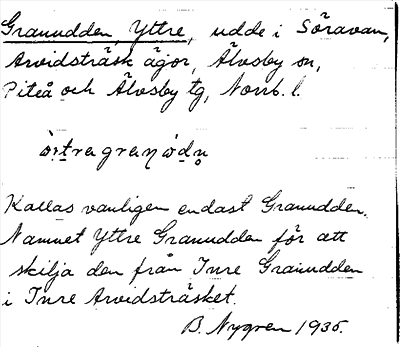 Granudden, Yttre, udde i Söravan,
Arvidsträsk ägor, Älvsby sn,
Piteå och Älvsby tg, Norrb. l.
Kallas vanligen endast Granudden.
Namnet Yttre Granudden för att
skilja den från Inre Granudden
i Inre Arvidsträsket.
B. Nygren 1935.